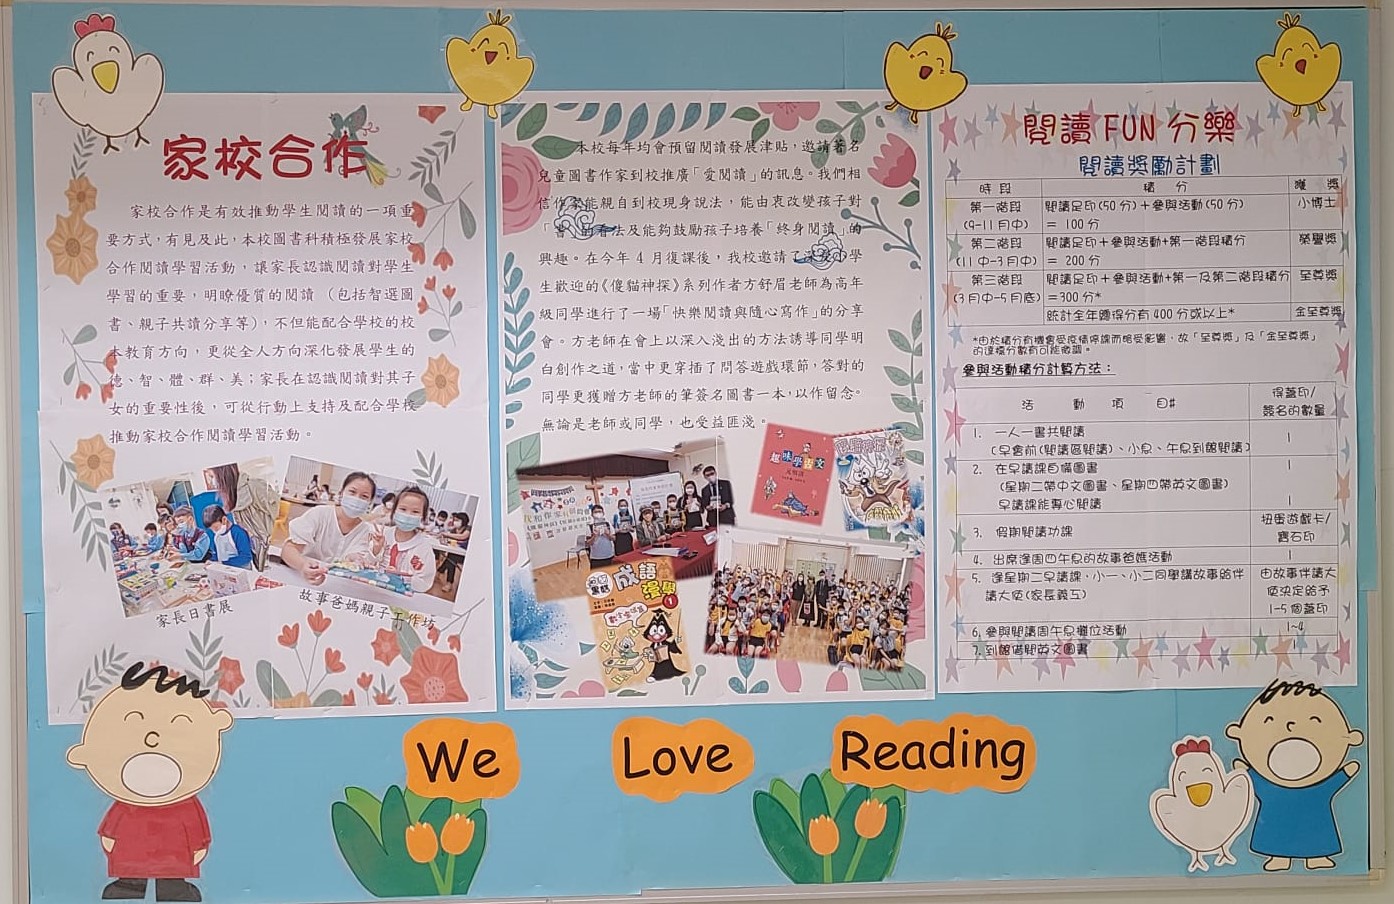 家校合作
家校合作是有效推動學生閱讀的一項重
要方式，有見及此，本校圖書科積極發展家校
合作閱讀學習活動，讓家長認識閱讀對學生
學習的重要，明瞭優質的閱讀（包括智選圖
書、親子共讀分享等），不但能配合學校的校
本教育方向，更從全人方向深化發展學生的
德、智、體、群、美；家長在認識閱讀對其子
女的重要性後，可從行動上支持及配合學校
推動家校合作閱讀學習活動。
家長日書展
故事爸媽親子工作坊
本校每年均會預留閱讀發展津貼，邀請著名
兒童圖書作家到校推廣「愛閱讀」的訊息。我們相
信作家能親自到校現身說法，能由衷改變孩子對
「書」的看法及能夠鼓勵孩子培養「終身閱讀」的
興趣。在今年 4 月復課後，我校邀請了深受小學
生歡迎的《傻貓神探》系列作者方舒眉老師為高年
級同學進行了一場「快樂閱讀與隨心寫作」的分享
會。方老師在會上以深入淺出的方法誘導同學明
白創作之道，當中更穿插了問答遊戲環節，答對的
同學更獲贈方老師的筆簽名圖書一本，以作留念。
無論是老師或同學，也受益匪淺。
趣味學語文
成語
漫學
1
閱讀 FUN 分樂
閱讀獎勵計劃
時 段 積 分 獲 獎
第一階段 閱讀足印(50 分)＋參與活動(50分) 小博士
(9-11月中) ＝ 100 分
第二階段 閱讀足印＋參與活動+第一階段積分 榮譽獎
(11 中-3月中) ＝ 200 分
第三階段 閱讀足印＋參與活動+第一及第二階段積分 至尊獎
(3 月中-5 月底) ＝300 分*
統計全年總得分有 400 分或以上* 金至尊獎
*由於積分有機會受疫情停課而略受影響，故「至尊獎」及「金至尊獎」
的達標分數有可能微調。
參與活動積分計算方法：
活 動 項 目# 得蓋印/
簽名的數量
1. 一人一書共閱讀 1
(早會前(閱讀區閱讀)、小息、午息到館閱讀)
2. 在早讀課自備圖書 1
(星期二帶中文圖書、星期四帶英文圖書)
早讀課能專心閱讀 1
3. 假期閱讀功課 扭蛋遊戲卡/
寶石印
4. 出席逢周四午息的故事爸媽活動 1
5. 逢星期二早讀課，小一、小二同學講故事給伴 由故事伴讀大
讀大使(家長義工) 使決定給予
1-5 個蓋印
6. 參與閱讀周午息攤位活動 1~4
7. 到館借閱英文圖書 1
We Love Reading